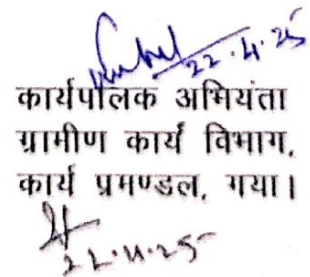 22.4.25
कार्यपालक अभियंता
ग्रामीण कार्य विभाग,
कार्य प्रमण्डल, गया।
22.4.25